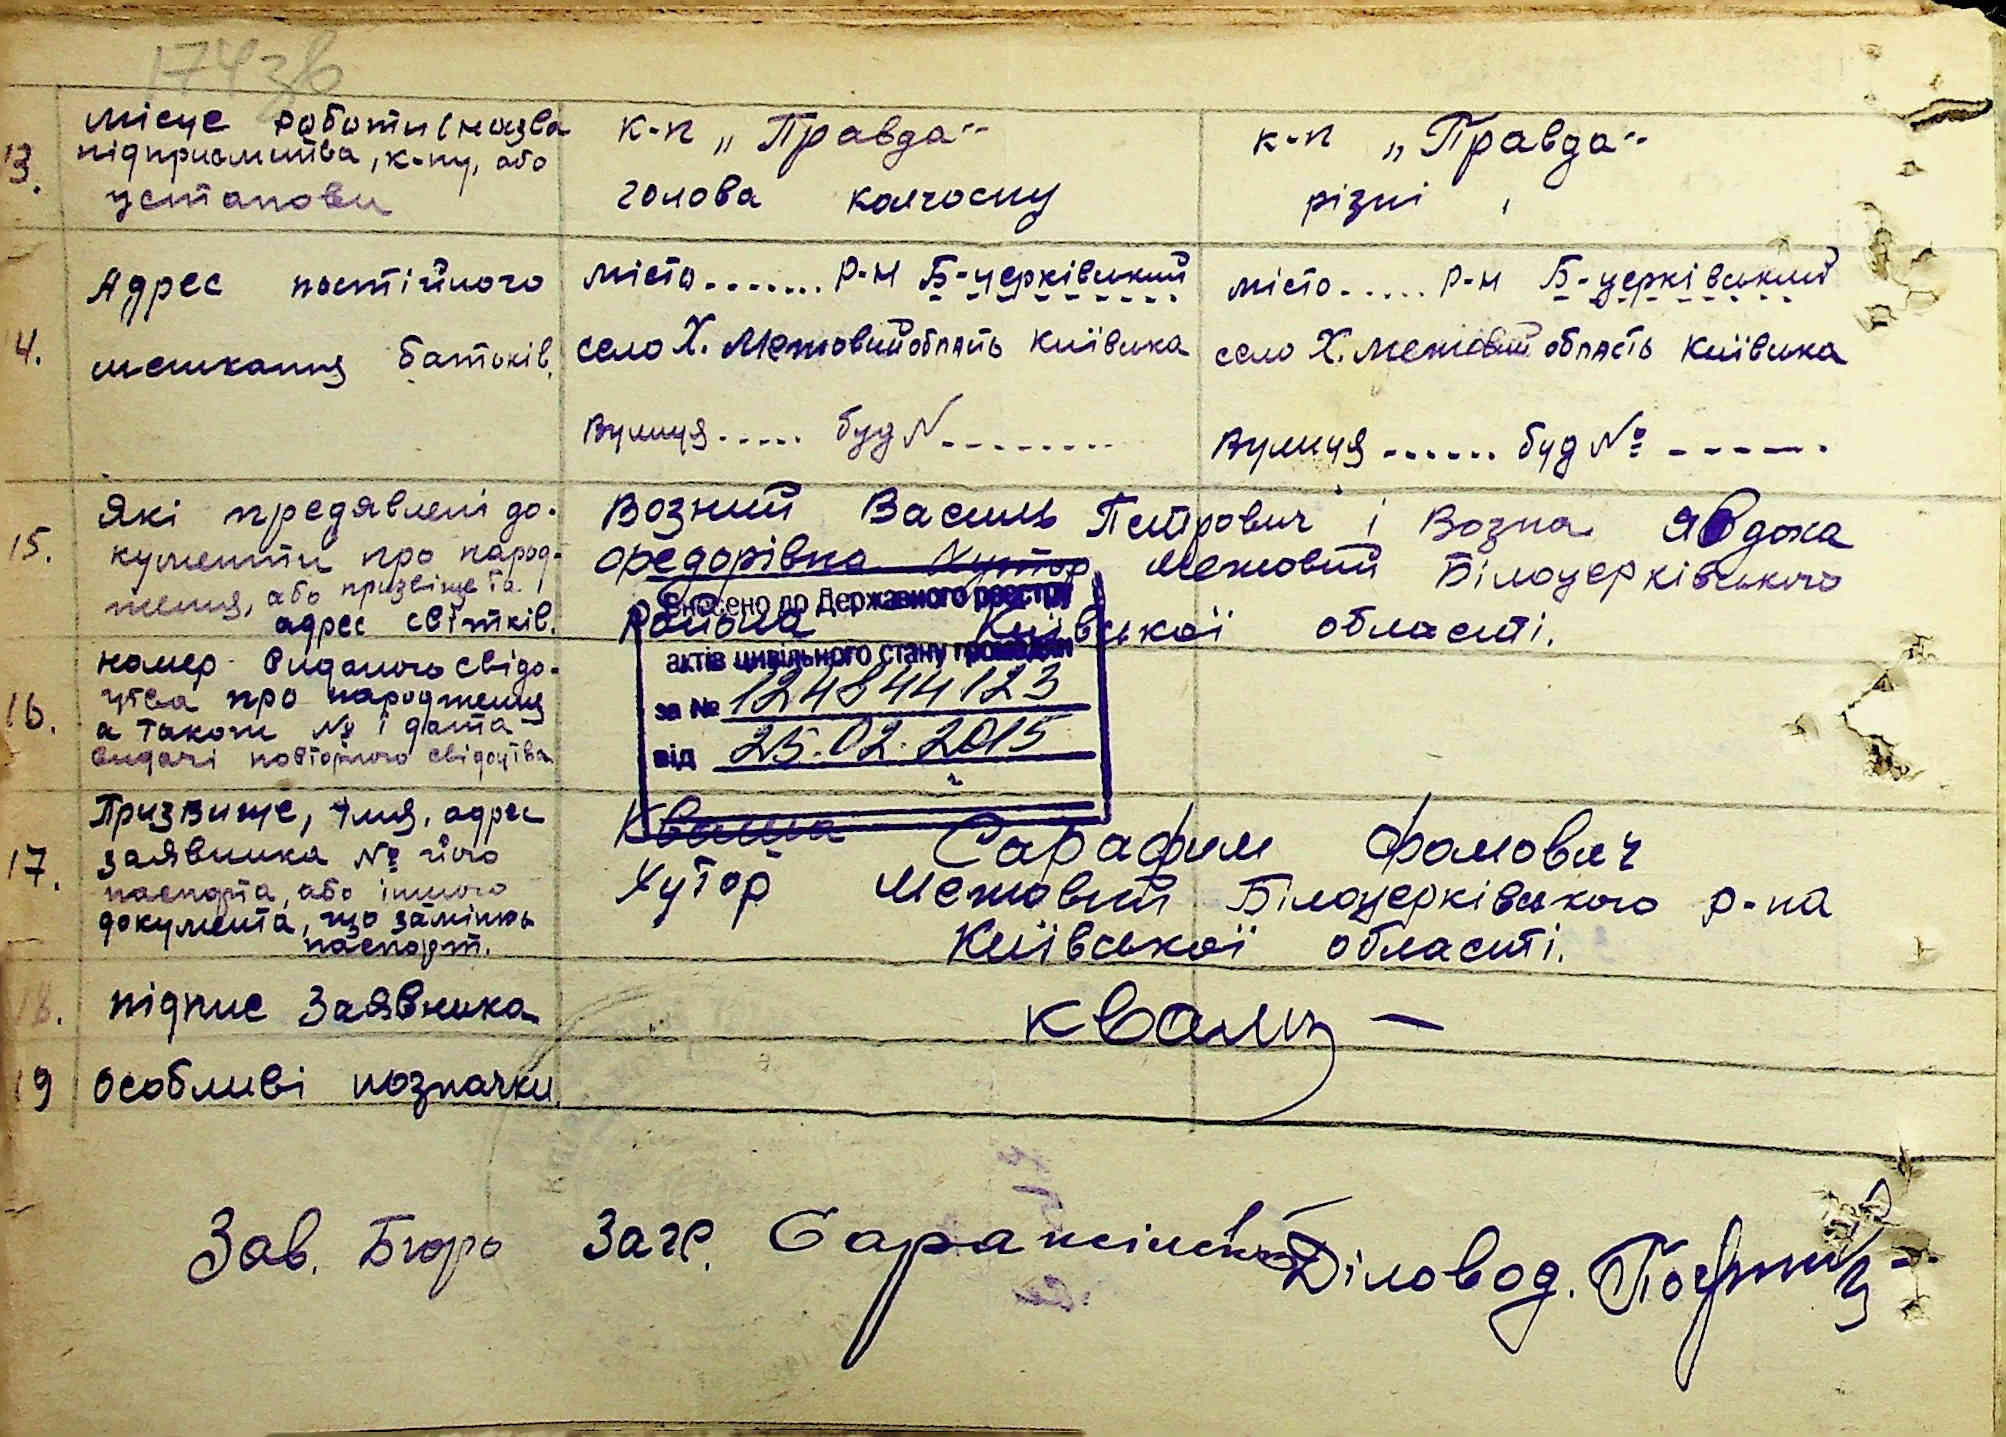 174зв
13. Місце роботи (назва підприємства, к-пу, або установи
к-п „Правда" голова колгоспу
к-п „Правда" різні
14. Адрес постійного мешкання батьків.
місто....... р-н Б-церківський
село Х. Межовий область Київська
Вулиця..... буд №........
місто..... р-н Б-церківський
село Х. Межовий область Київська
Вулиця...... буд №------.
15. Які предявлені до-
кументи про народ-
ження, або призвіще та
адрес свідків.
Возний Василь Петрович і Возна Явдоха
Федорівна Хутор Межовий Білоцерківського
района Київської области.
16. номер виданого свідо-
цтва про народження
а також № і дата
видачі повторного свідоцтва
Внесено до Державного реєстру
актів цивільного стану громадян
за № 124844123
від 25.02.2015
17. Призвище, імя, адрес
заявника № його
паспорта, або іншого
документа, що замінює
паспорт.
Кваша Сарафим Фомович
Хутор Межовий Білоцерківського р-на
Київської области.
18. підпис Заявника
Кваша
19 Особливі позначки.
Зав. Бюро Загс.
Діловод.